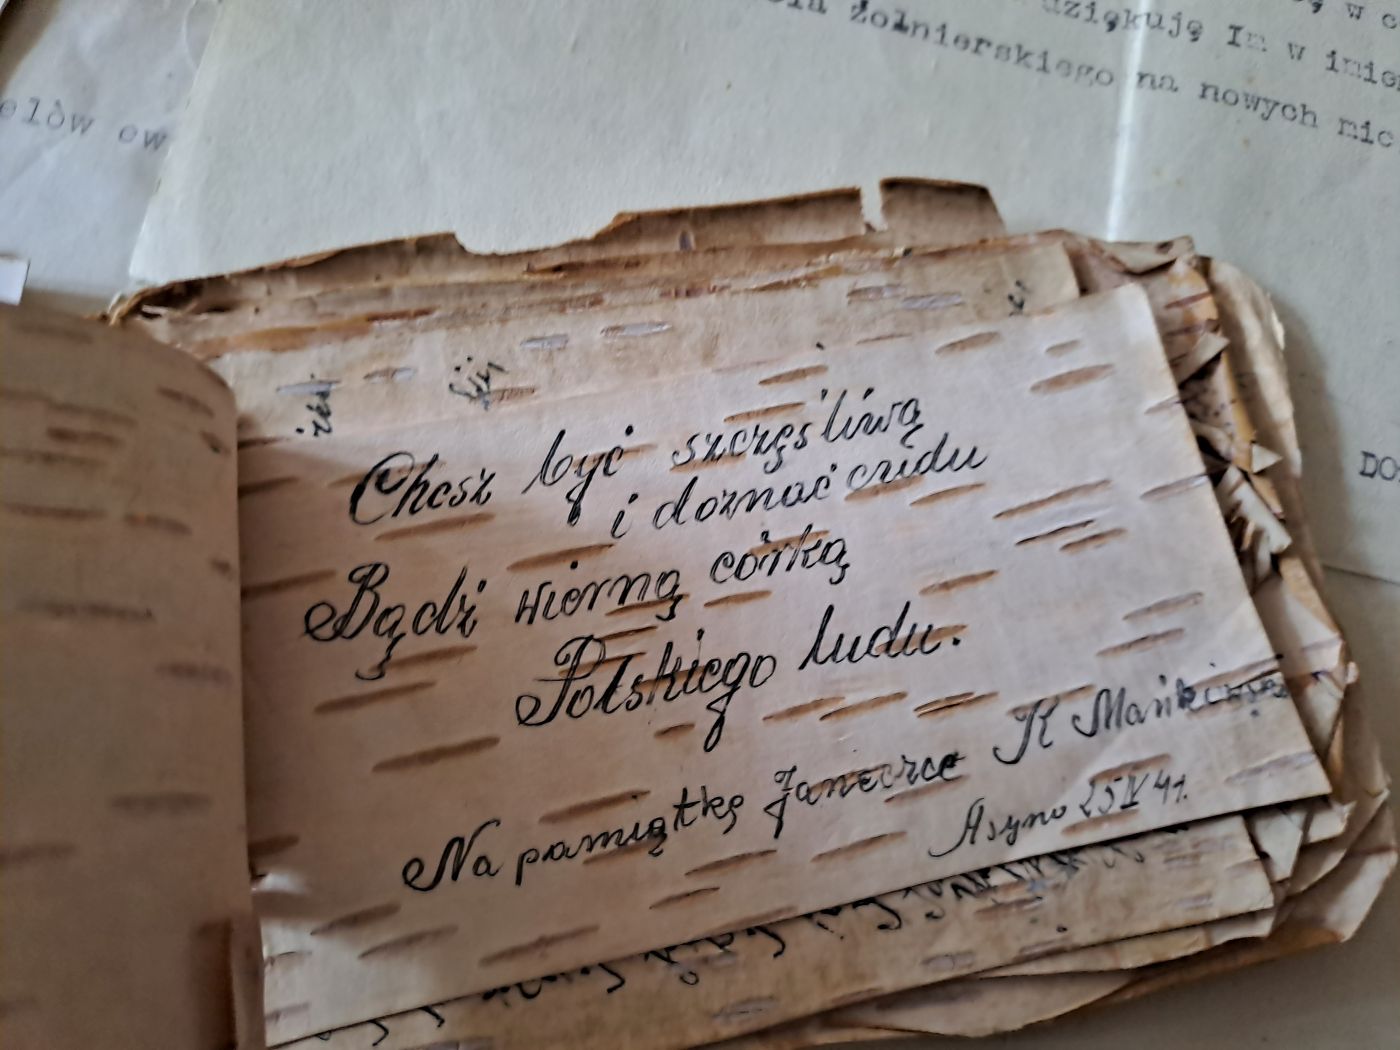 dziękuję Im w imien
żołnierskiego na nowych mie
elów ew
Chcsz być szczęśliwą
i doznać cudu
Bądź wierną córką
Polskiego ludu.
Na pamiątkę Janeczce K Mańkowska
Asyno 25 IV 41.